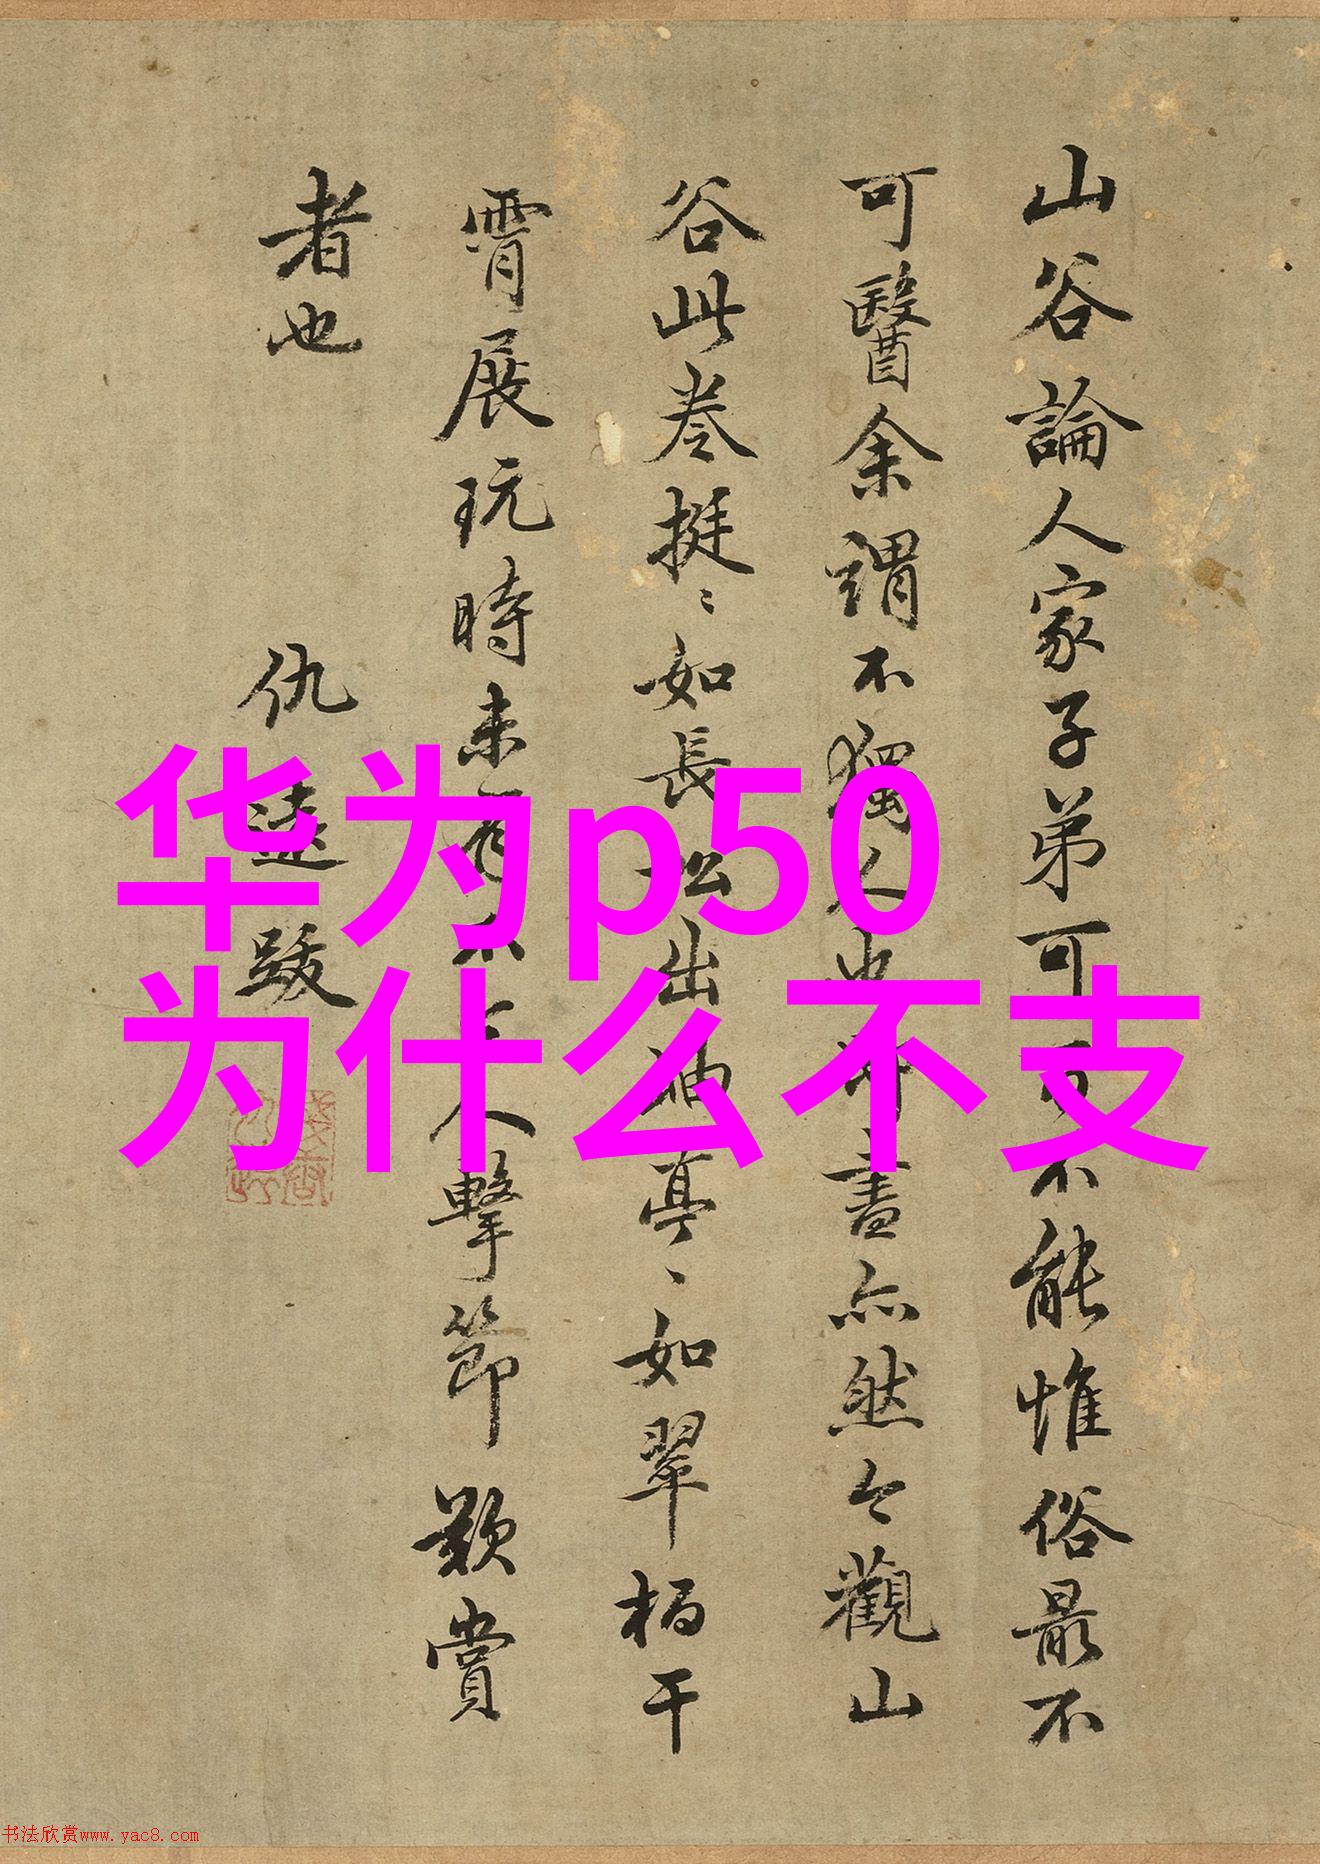 山谷論人家子弟可百不能惟俗最不
可醫余謂不獨人也書畫亦然今觀山
谷此卷挺〻如長松出岫亭〻如翠柏干
霄展玩時未有不令人擊節歎賞
者也
仇遠跋
华为p50
为什么不支
书法欣赏www.yac8.com